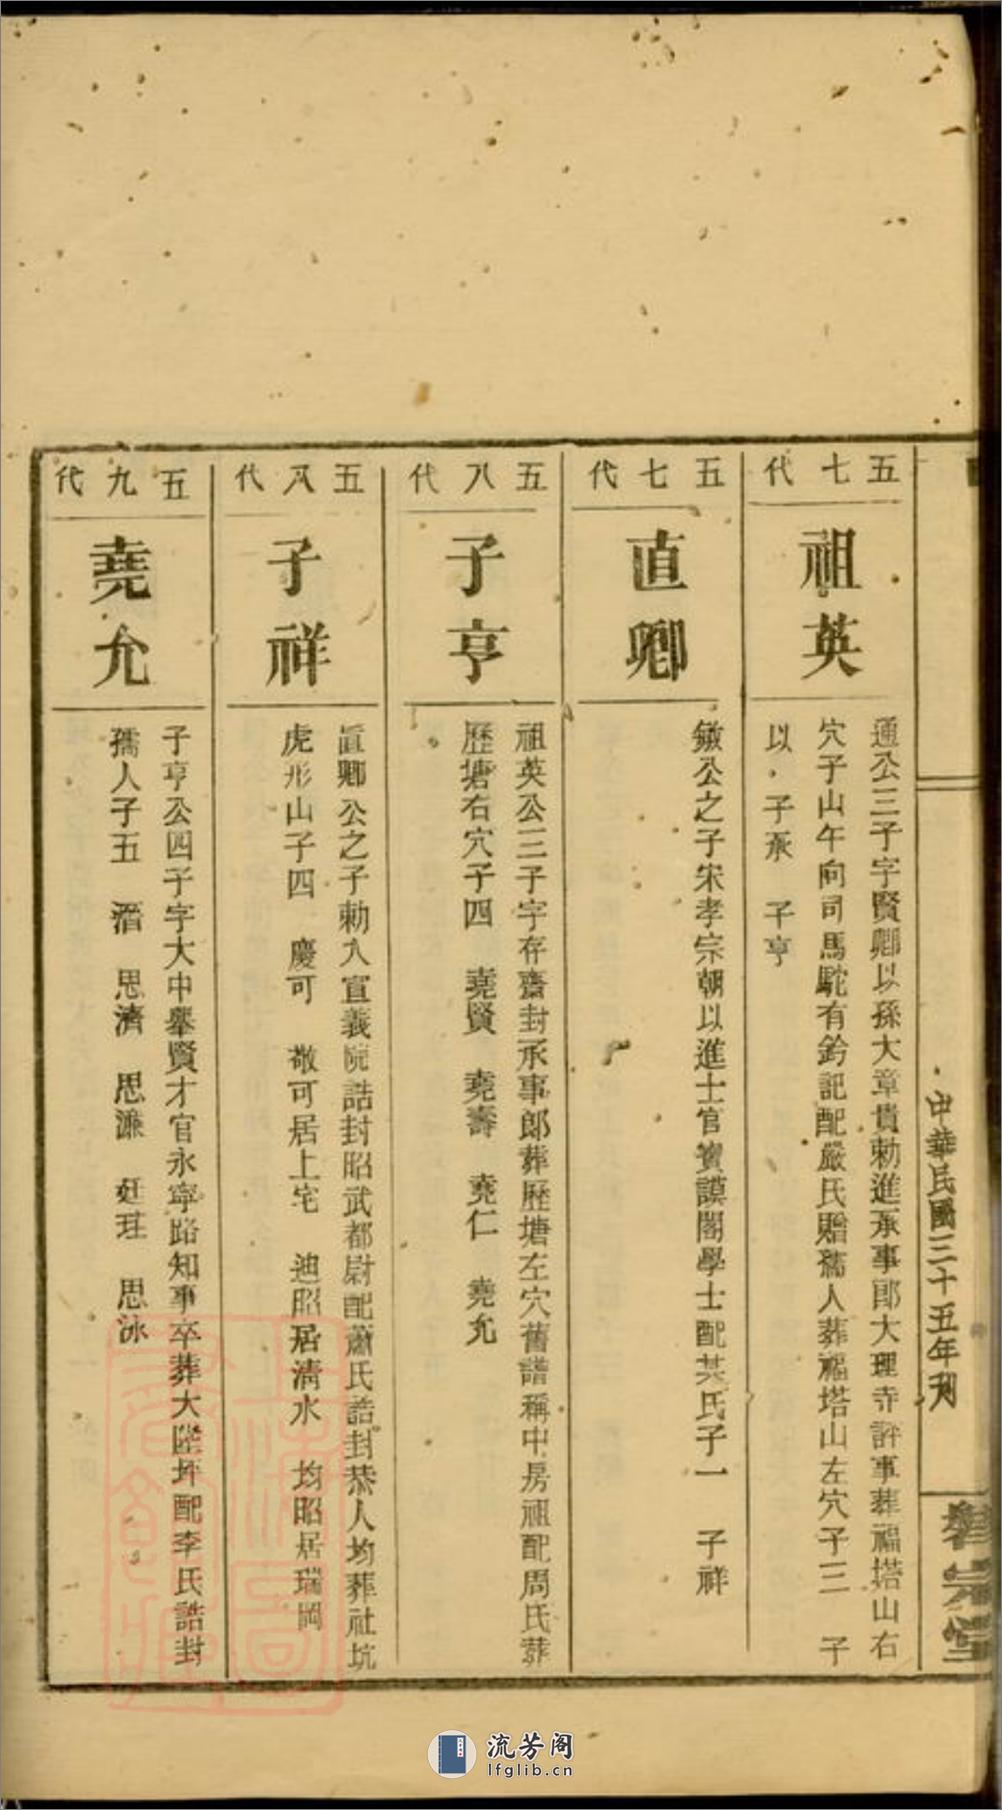 中華民國三十五年刊
五七代
祖英
通公三子字賢卿以孫大章貴勅進承事郎大理寺評事葬福塔山右
穴子山午向司馬駝有鈐記配嚴氏贈孺人葬福塔山左穴子三 子
以 子承 子亨
五七代
直卿
公之子宋孝宗朝以進士官寶謨閣學士配其氏子一 子祥
五八代
子亨
祖英公三子字存齋封承事郎葬歷塘左穴舊譜稱中房祖配周氏葬
歷塘右穴子四 堯賢 堯壽 堯仁 堯允
五八代
子祥
直卿公之子勅入宣義院誥封昭武都尉配蕭氏誥封恭人均葬社坑
虎形山子四 慶可 敬可居上宅 迪昭居淸水 均昭居瑞岡
五九代
堯允
子亨公四子字大中舉賢才官永寧路知事卒葬大坪配李氏誥封
孺人子五 思濟 思濂 廷珪 思泳
流芳阁
lfglib.cn